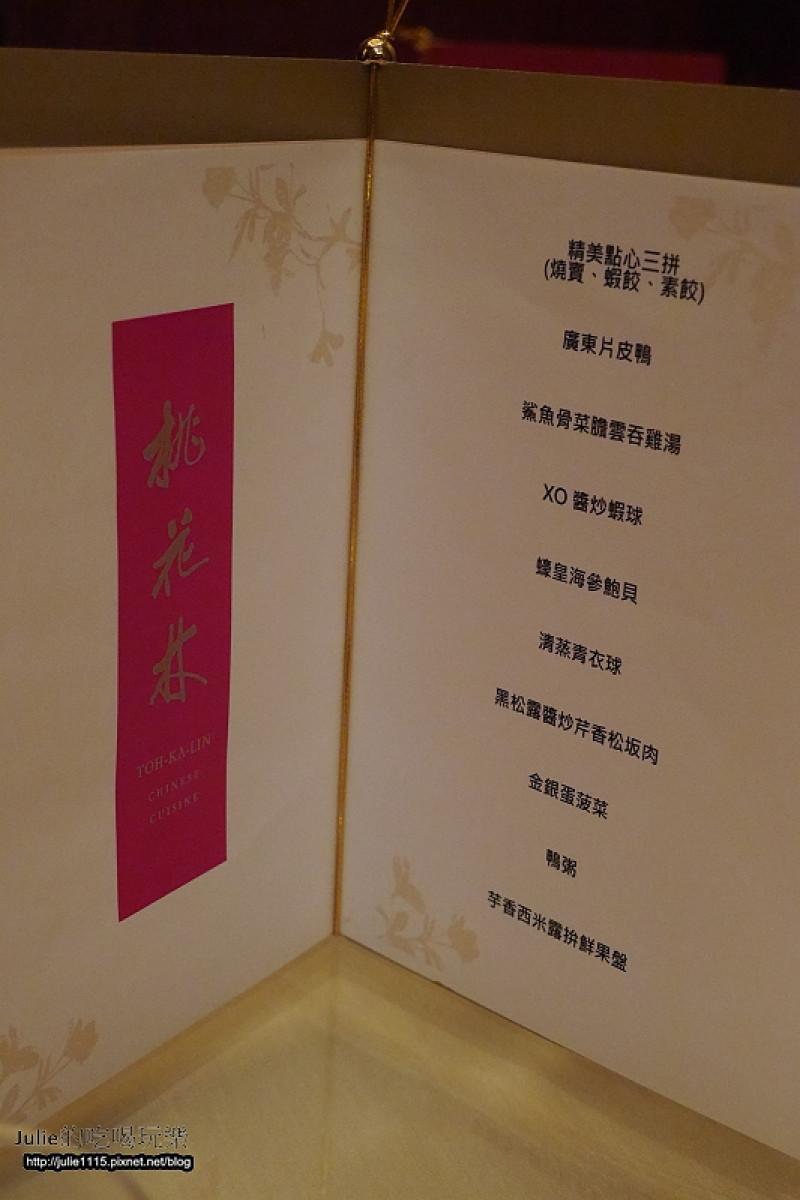 桃花林
TOH-KA-LIN
CHINESE
CUISINE
精美點心三拼
(燒賣、蝦餃、素餃)
廣東片皮鴨
鯊魚骨菜膽雲吞雞湯
XO 醬炒蝦球
蠔皇海參鮑貝
清蒸青衣球
黑松露醬炒芹香松坂肉
金銀蛋菠菜
鴨粥
芋香西米露拚鮮果盤
Julie的吃喝玩樂
http://julie1115.pixnet.net/blog